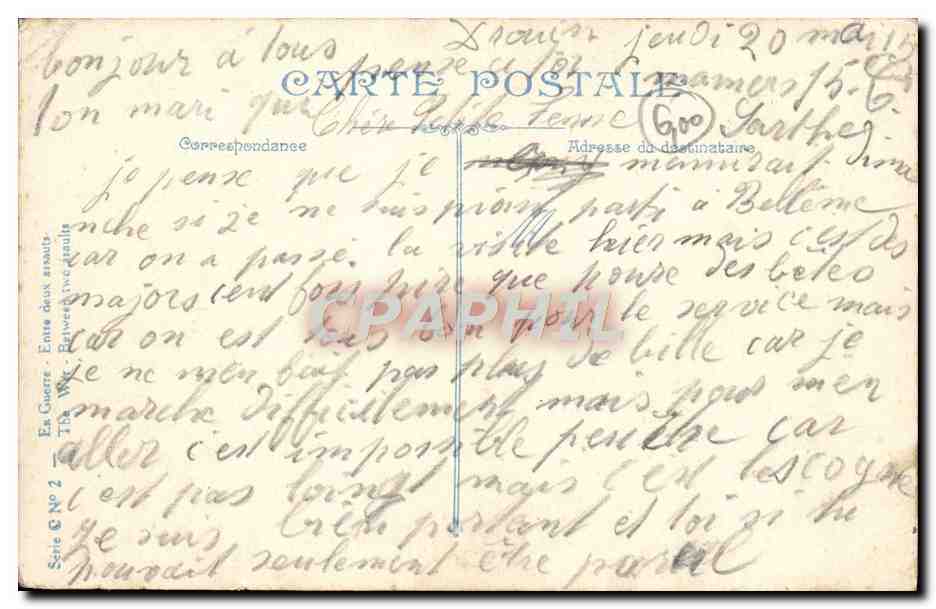 jeudi 20 mai 15
bonjour à tous
pense
mamers 15.
CARTE POSTALE
ton mari que
Chère Petite Femme
600
Sarthe
Correspondance
Adresse du destinataire
je pense que je
car on a passé la visite hier mais c'est des
parti à Bellême
nche si je ne suis
majors cent fois pire que pour des betes
car on est tous bon pour le service mais
je ne m'en fait pas plus de bille car je
marche difficilement mais pour m'en
aller c'est impossible peut être car
c'est pas loingt mais c'est
je suis bien portant et toi si tu
pouvait seulement être pareil
Serie C No 2 - En Guerre - Entre deux assauts
The War - Between two assaults
CPAPHIL